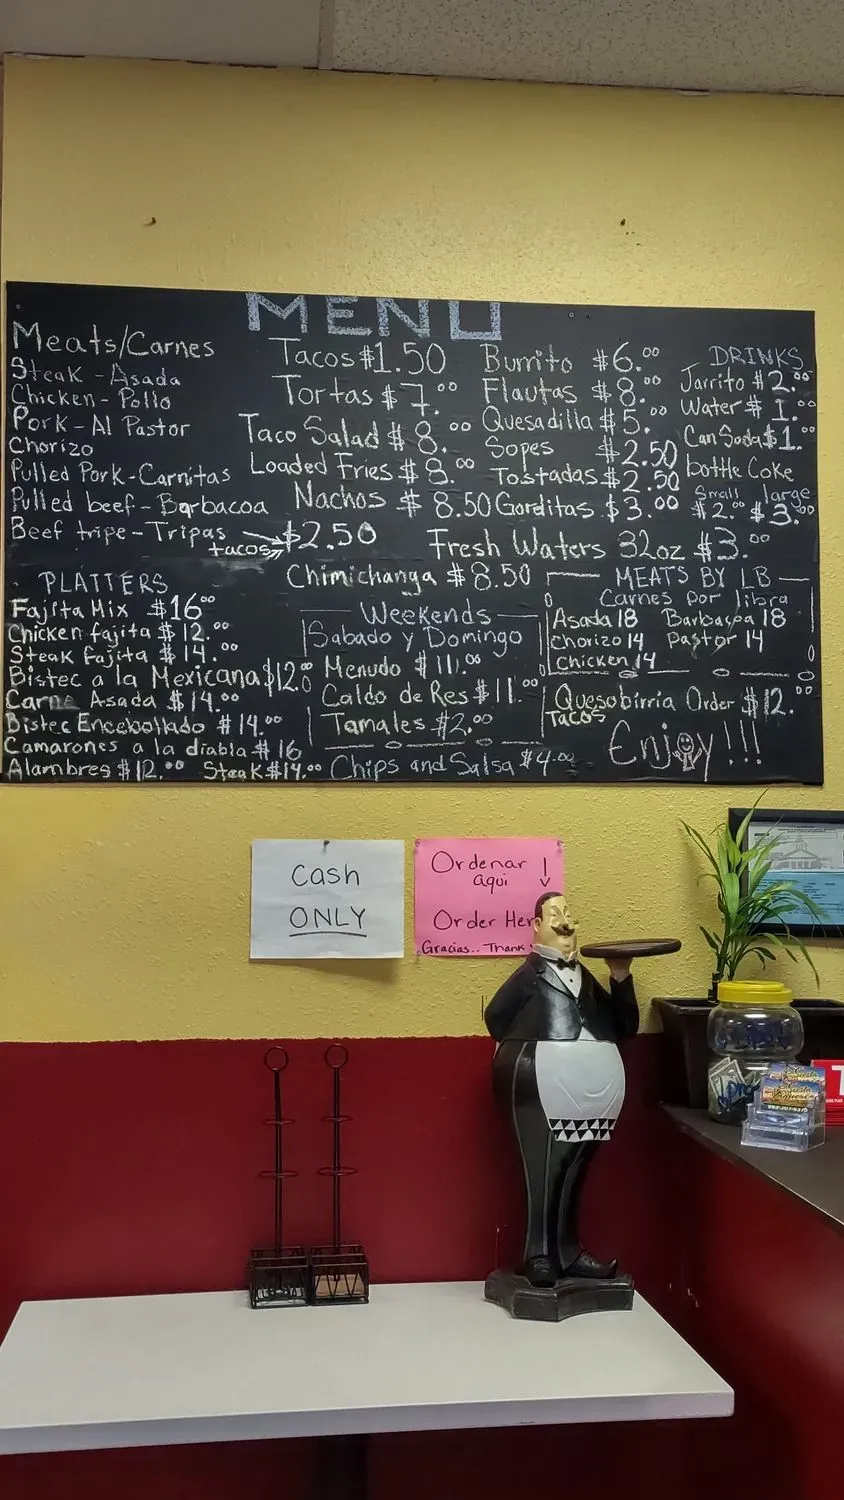 MENU
Meats/Carnes
Steak - Asada
Chicken - Pollo
Pork - Al Pastor
Chorizo
Pulled Pork - Carnitas
Pulled beef - Barbacoa
Beef tripe - Tripas
tacos $2.50
Tacos $1.50
Tortas $7.00
Taco Salad $8.00
Loaded Fries $8.00
Nachos $8.50
Burrito $6.00
Flautas $8.00
Quesadilla $5.00
Sopes $2.50
Tostadas $2.50
Gorditas $3.00
DRINKS
Jarrito $2.00
Water $1.00
Can Soda $1.00
bottle Coke
Small large
$2.00 $3.00
Fresh Waters 32oz $3.00
Chimichanga $8.50
PLATTERS
Fajita Mix $16.00
Chicken fajita $12.00
Steak fajita $14.00
Bistec a la Mexicana $12.00
Carne Asada $14.00
Bistec Encebollado $14.00
Camarones a la diabla $16
Alambres $12.00 Steak $14.00
Weekends
Sabado y Domingo
Menudo $11.00
Caldo de Res $11.00
Tamales $2.00
Chips and Salsa $4.00
MEATS BY LB
Carnes por libra
Asada 18 Barbacoa 18
Chorizo 14 Pastor 14
Chicken 14
Quesobirria Order $12.00
Tacos
Enjoy!!!
Cash
ONLY
Ordenar
aqui
Order Her
Gracias.. Thank